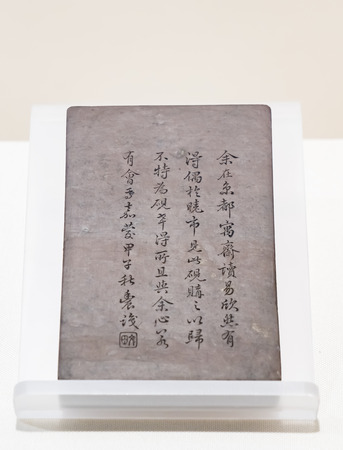 余在京都寓齋讀易欣然有
得偶於曉市見此硯購之以歸
不特為硯幸得所且與余心若
有會焉嘉慶甲子秋農識